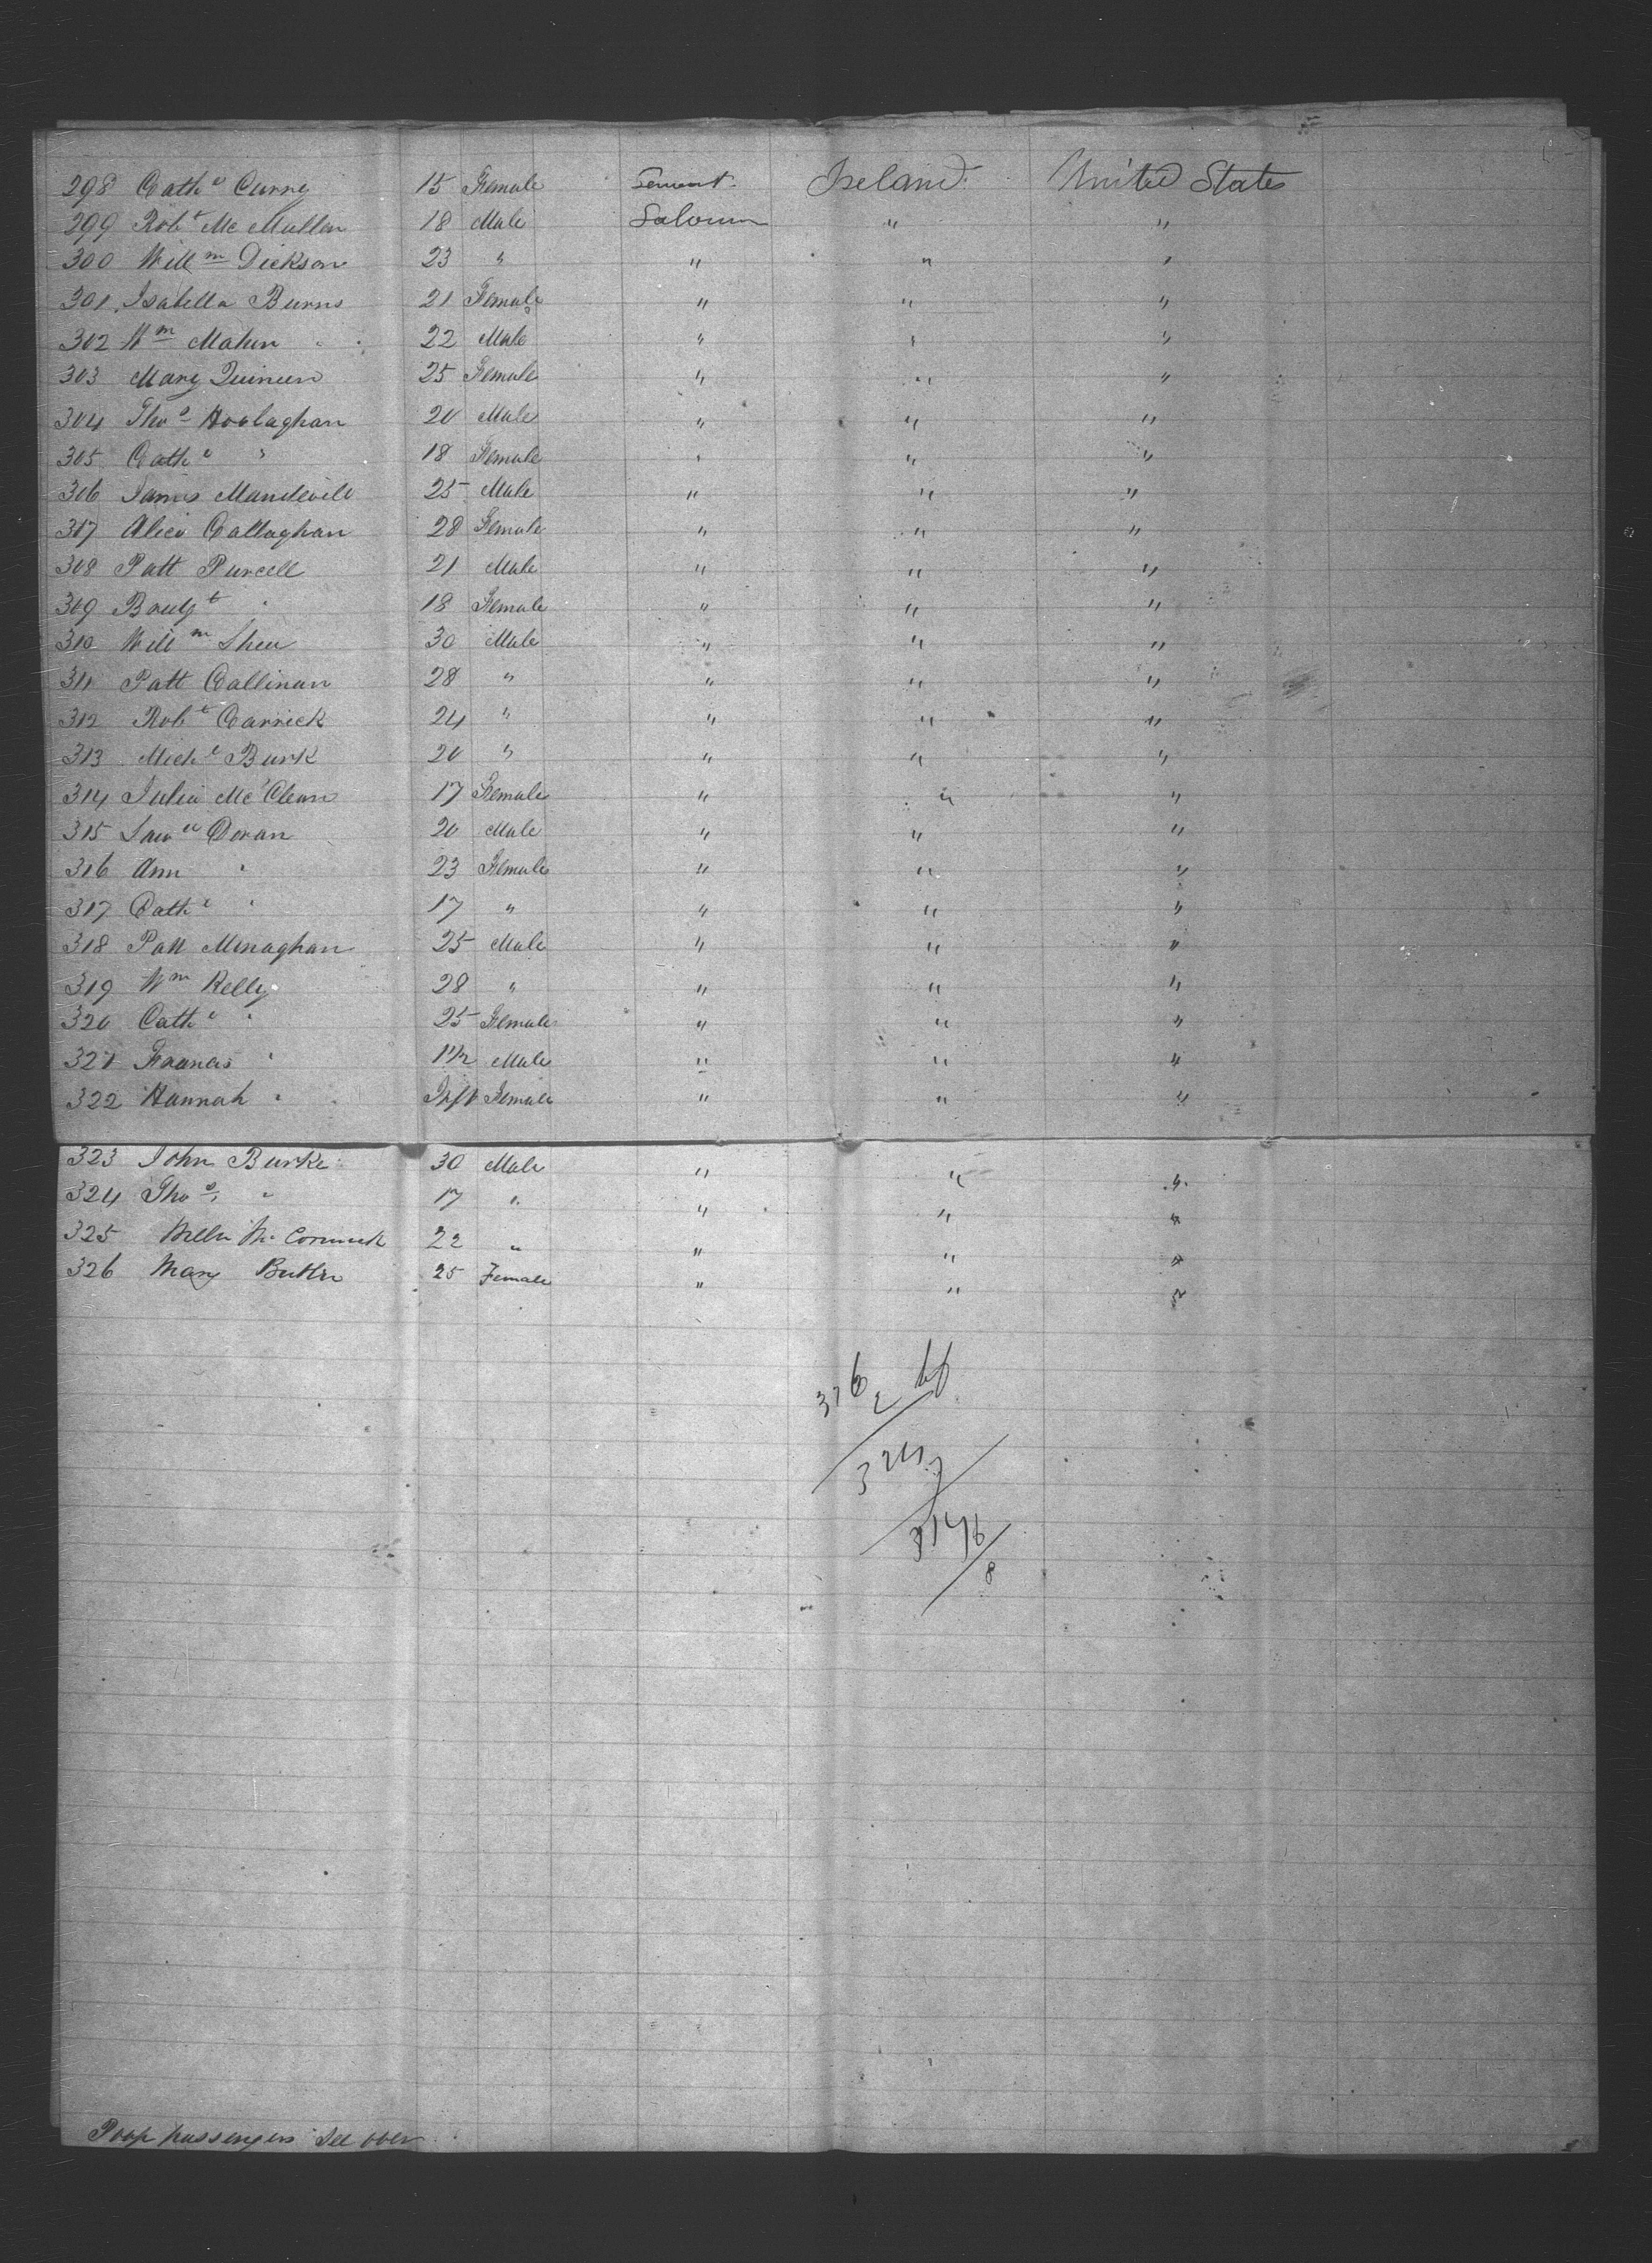 298 Cath^e Curry 15 Female Servant Ireland United States
299 Rob^t Mc Mullen 18 Male Labourer " "
300 Will^m Dickson 23 " " " "
301 Isabella Burns 21 Female " " "
302 W^m Maher 22 Male " " "
303 Mary Quineen 25 Female " " "
304 Tho^s Hoolaghan 20 Male " " "
305 Cath^e " 18 Female " " "
306 James Mandevill 25 Male " " "
307 Alice Callaghan 28 Female " " "
308 Patt Purcell 21 Male " " "
309 Bridg^t " 18 Female " " "
310 Will^m Shea 30 Male " " "
311 Patt Callinan 28 " " " "
312 Rob^t Carrick 24 " " " "
313 Mich^l Burk 20 " " " "
314 Julia Mc Clean 17 Female " " "
315 Law^ce Doran 20 Male " " "
316 Ann " 23 Female " " "
317 Cath^e " 17 " " " "
318 Patt Minaghan 25 Male " " "
319 W^m Kelly 28 " " " "
320 Cath^e " 25 Female " " "
321 Francis " 1 1/2 Male " " "
322 Hannah " Inft Female " " "
323 John Burke 30 Male " " "
324 Tho^s " 17 " " " "
325 Mc Cormack 22 " " " "
326 Mary Butler 25 Female " " "
326
8
Poop passengers See over